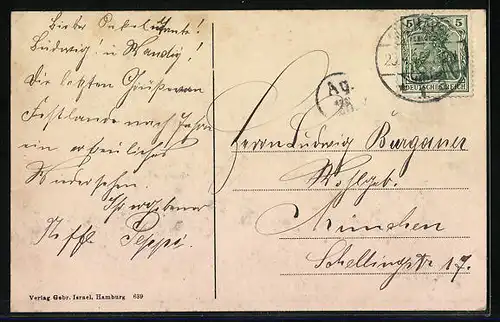 Lieber Onkel u. Tante!
Ludwig! u Wandig!
Die letzten Grüße vom
Festlande nach
ein erfreuliches
Wiedersehen.
Ihr ergebener
Neffe Peppi.
Verlag Gebr. Israel, Hamburg 639
5 5
DEUTSCHES REICH
Ag.
Herrn Ludwig Burganer
Wohlgeb.
München
Schellingstr 17.